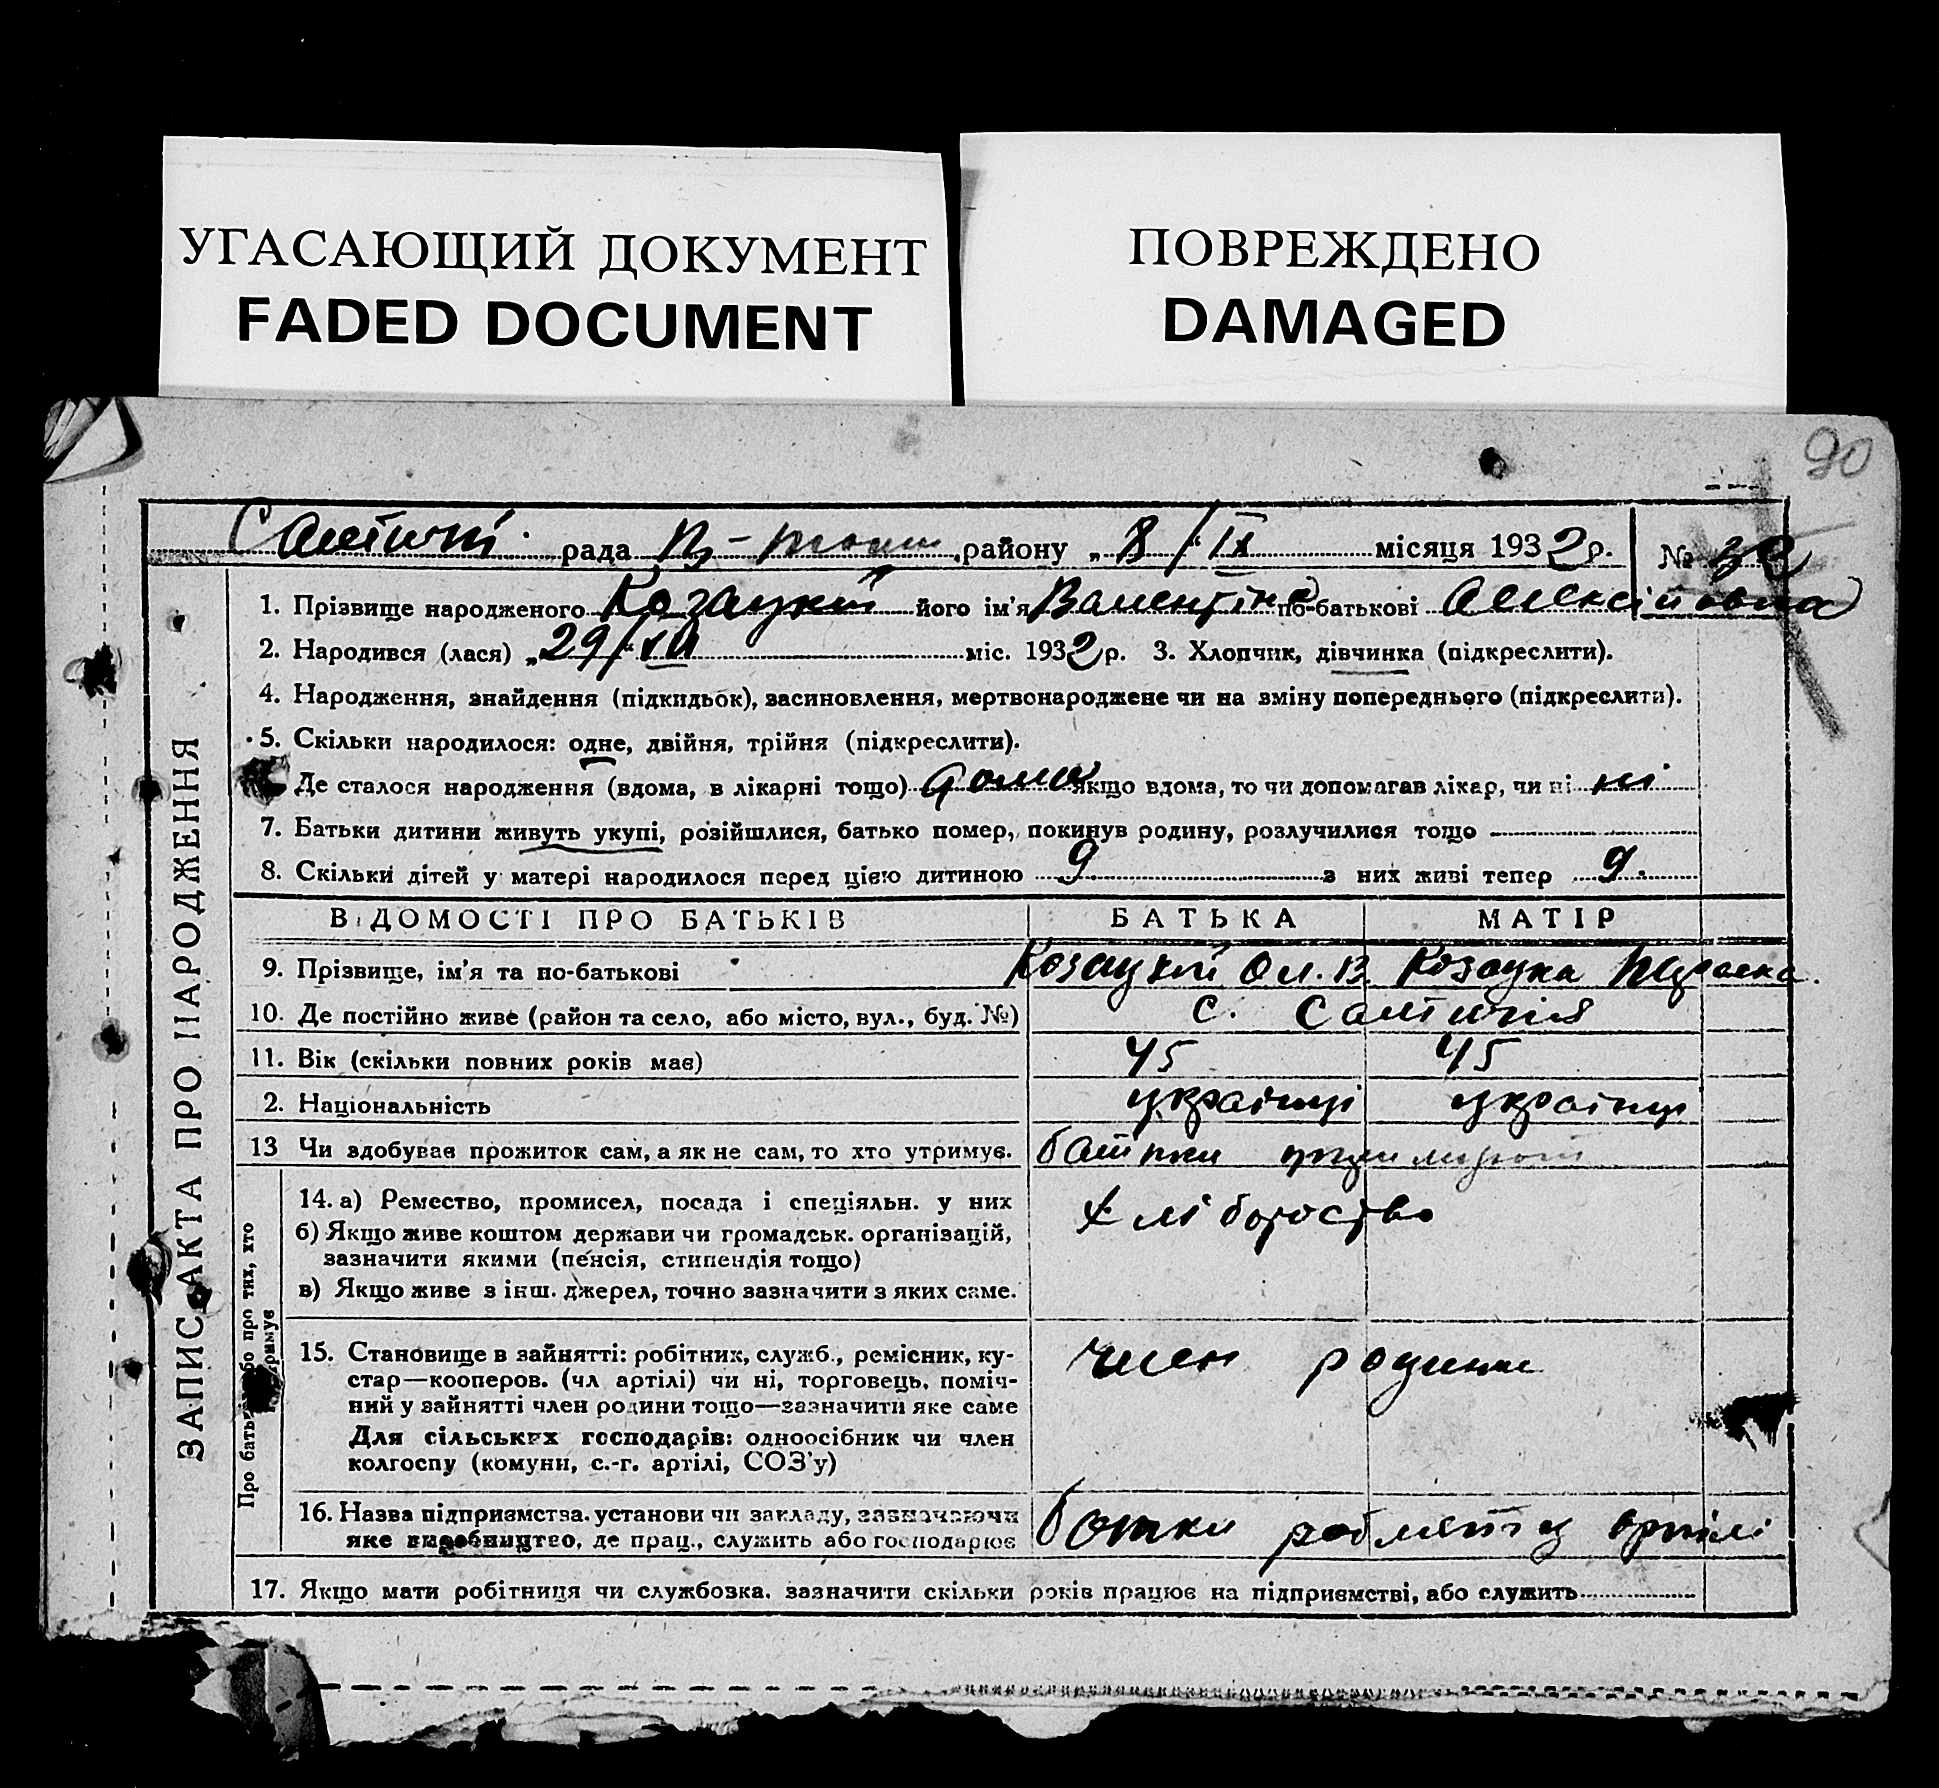 УГАСАЮЩИЙ ДОКУМЕНТ
FADED DOCUMENT
ПОВРЕЖДЕНО
DAMAGED
90
рада району „ 8 / IX місяця 1932 р. №
ЗАПИС АКТА ПРО НАРОДЖЕННЯ
1. Прізвище народженого Козацкий його ім'я Валентіна по-батькові Олексійовна
2. Народився (лася) „ 29 / міс. 1932 р. 3. Хлопчик, дівчинка (підкреслити).
4. Народження, знайдення (підкидьок), засиновлення, мертвонароджене чи на зміну попереднього (підкреслити).
5. Скільки народилося: одне, двійня, трійня (підкреслити).
Де сталося народження (вдома, в лікарні тощо) дома якщо вдома, то чи допомагав лікар, чи ні ні
7. Батьки дитини живуть укупі, розійшлися, батько помер, покинув родину, розлучилися тощо
8. Скільки дітей у матері народилося перед цією дитиною 9 з них живі тепер 9.
ВІДОМОСТІ ПРО БАТЬКІВ БАТЬКА МАТІР
9. Прізвище, ім'я та по-батькові Козацкий Ол. В. Козацка
10. Де постійно живе (район та село, або місто, вул., буд. №) с.
11. Вік (скільки повних років має) 45 45
2. Національність українці українці
13 Чи здобував прожиток сам, а як не сам, то хто утримує. батьки
Про батьків або про тих, хто утримує
14. а) Ремество, промисел, посада і спеціяльн. у них хліборобство
б) Якщо живе коштом держави чи громадськ. організацій,
зазначити якими (пенсія, стипендія тощо)
в) Якщо живе з інш. джерел, точно зазначити з яких саме.
15. Становище в зайнятті: робітник, служб., ремісник, ку-
стар—кооперов. (чл артілі) чи ні, торговець, поміч-
ний у зайнятті член родини тощо—зазначити яке саме
член родини
Для сільських господарів: одноосібник чи член
колгоспу (комуни, с.-г. артілі, СОЗ'у)
16. Назва підприємства, установи чи закладу, зазначаючи
яке виробництво, де прац., служить або господарює
батьки роблять у артілі
17. Якщо мати робітниця чи службовка, зазначити скільки років працює на підприємстві, або служить